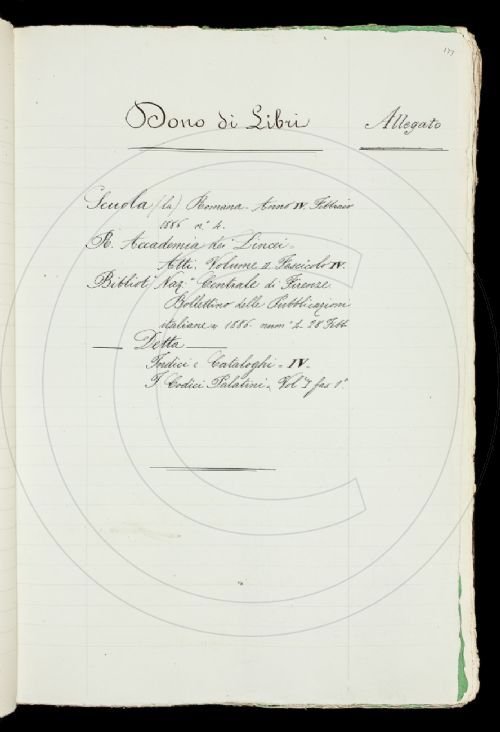 177
Dono di Libri Allegato
Scuola (la) Romana - Anno IV. Febbraio
1886 n.° 4.
R. Accademia dei Lincei -
Atti. Volume II. Fascicolo IV.
Bibliot.ª Naz.ª Centrale di Firenze
Bollettino delle Pubblicazioni
italiane - 1886 - num.° 4. 28 Febb.
Detta
Indici e Cataloghi - IV -
I Codici Palatini - Vol. I fas. 1°